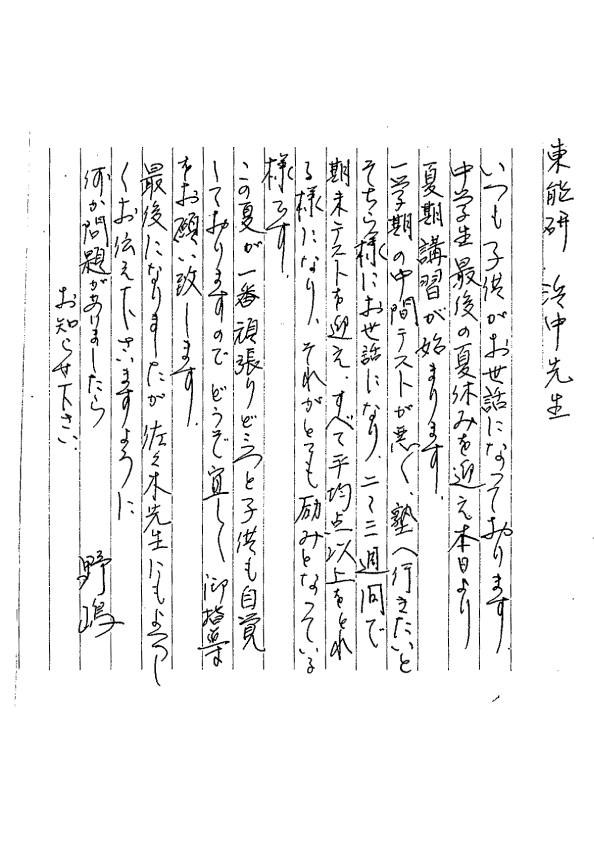 東能研 浜中先生
いつも子供がお世話になっております
中学生最後の夏休みを迎え本日より
夏期講習が始まります。
一学期の中間テストが悪く、塾へ行きたいと
そちら様にお世話になり、二〜三週間で
期末テストを迎え、すべて平均点以上をとれ
る様になり、それがとても励みとなっている
様です。
この夏が一番頑張りどころと子供も自覚
しておりますので どうぞ宜しく御指導
をお願い致します。
最後になりましたが佐々木先生にもよろし
くお伝え下さいますように
何か問題がありましたら
お知らせ下さい。
野嶋